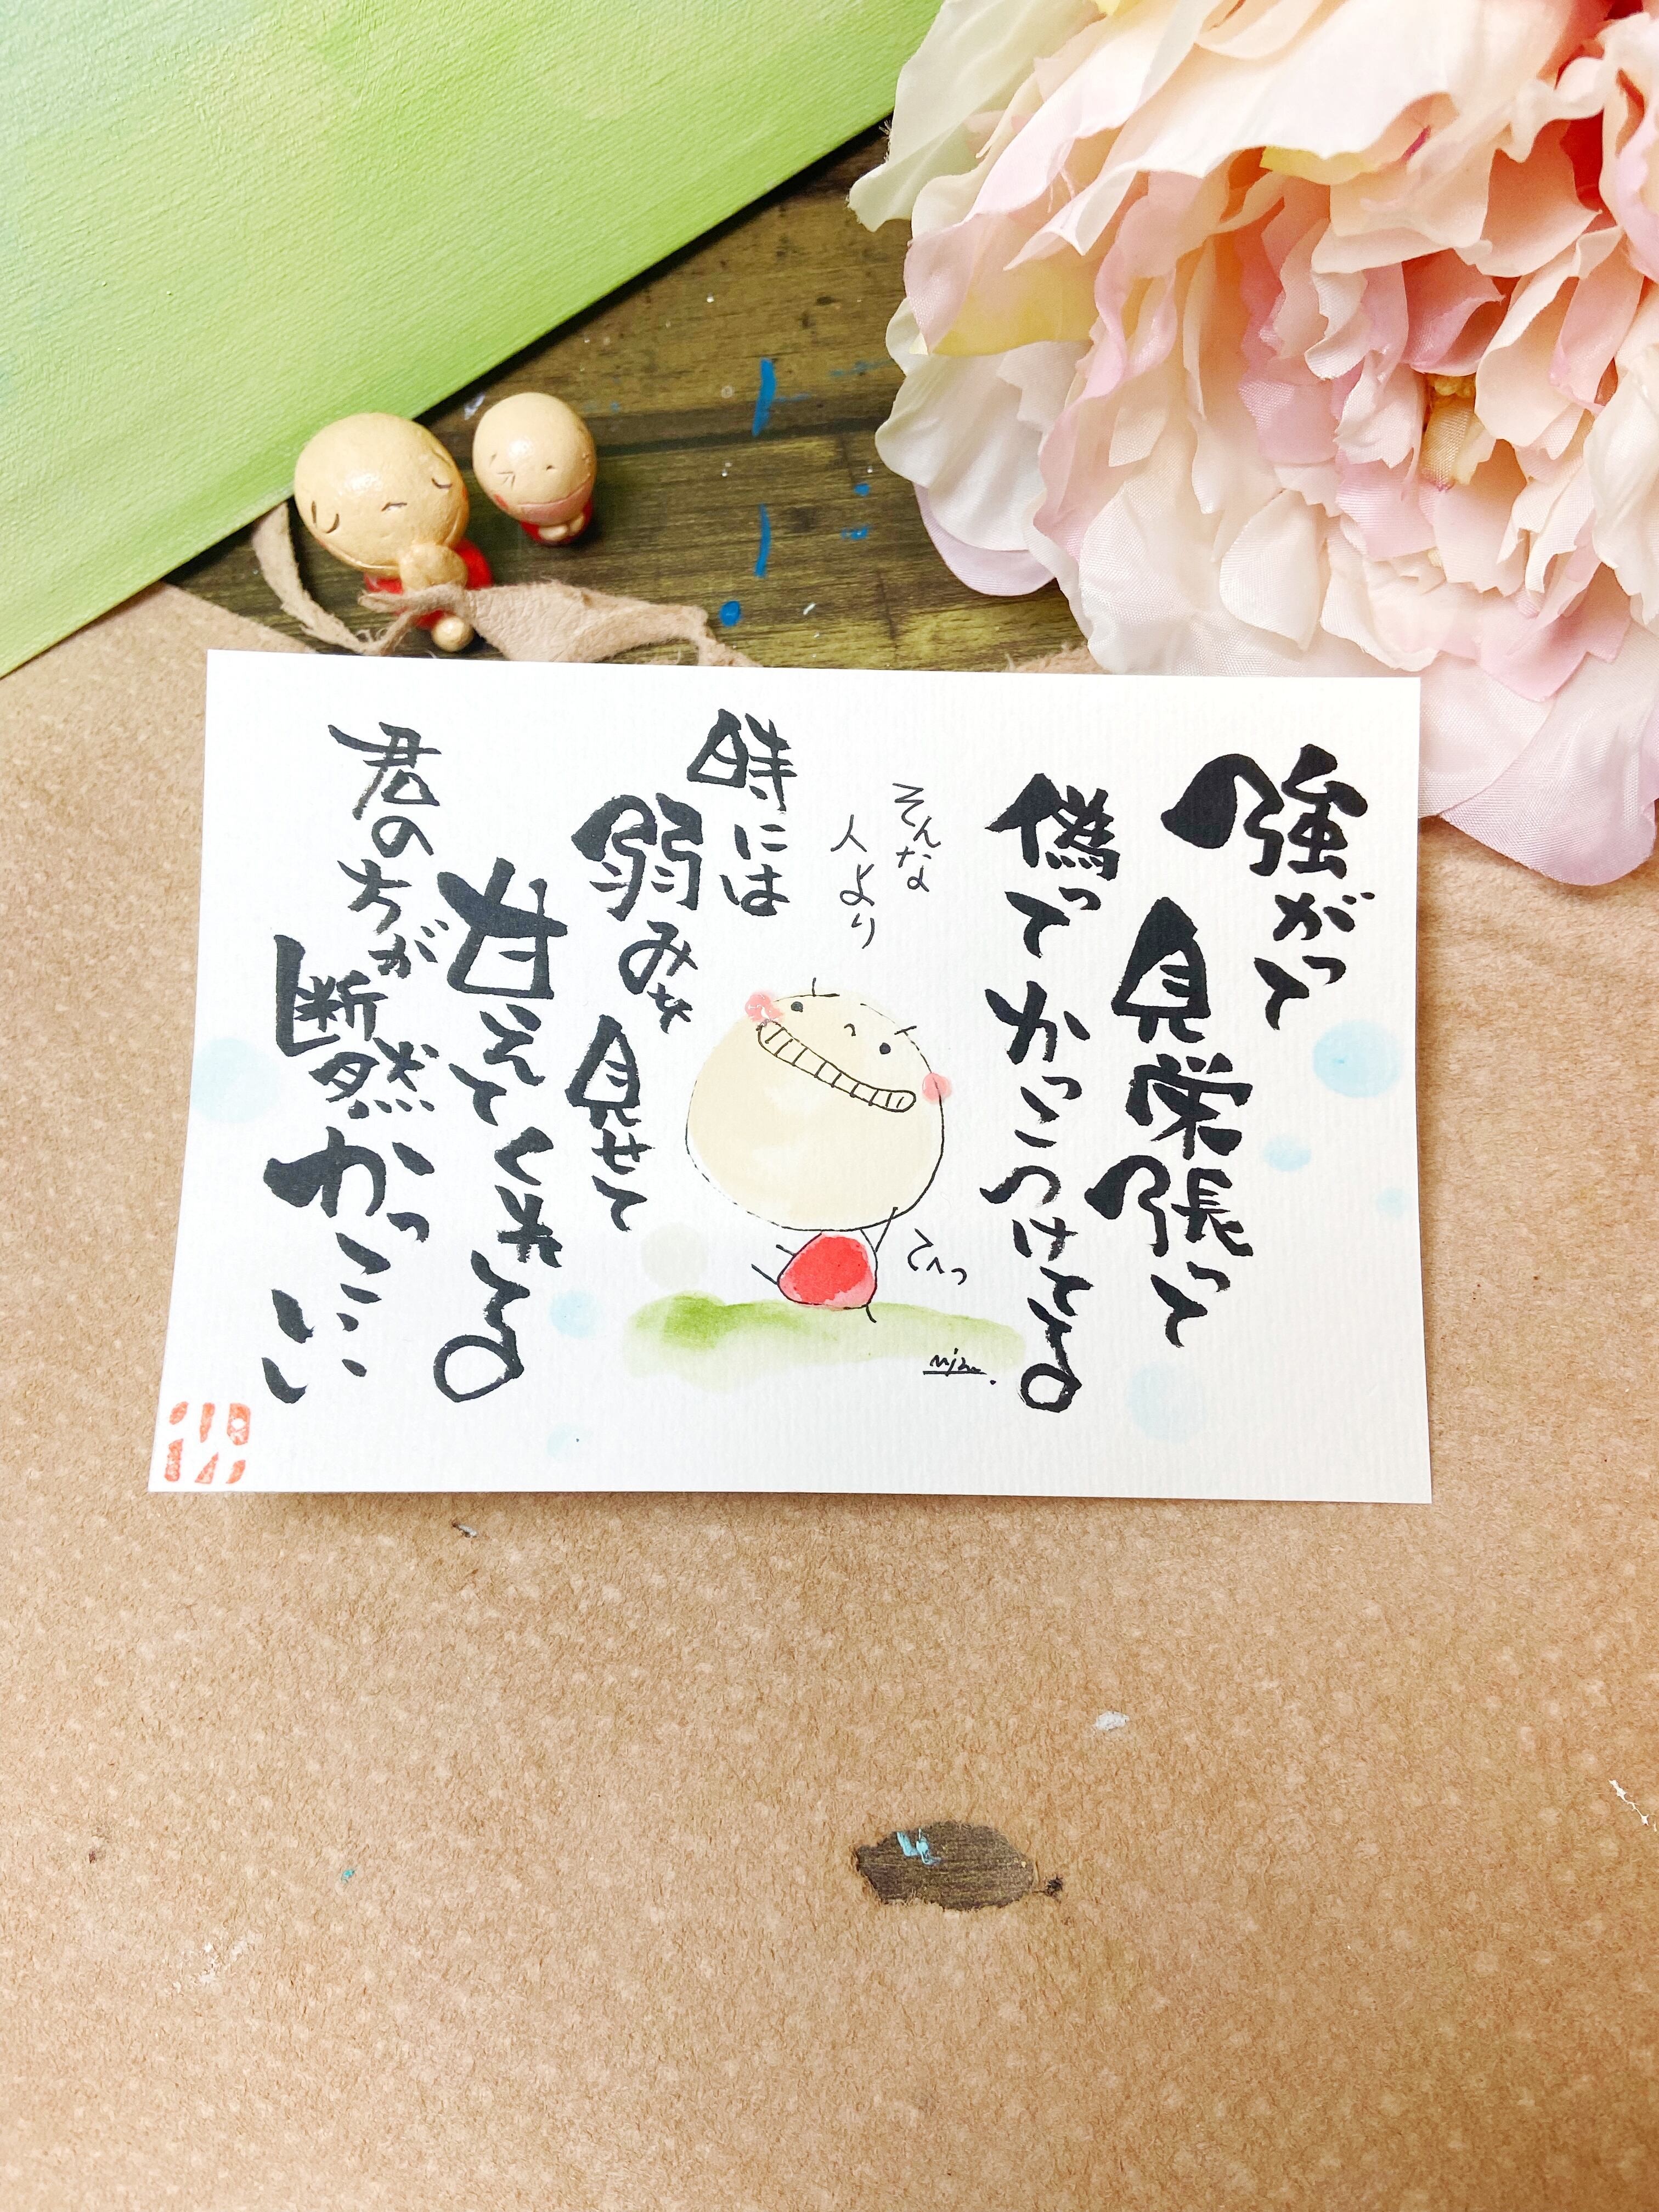 強がって
見栄張って
偽ってかっこつけてる
そんな
人より
時には
弱みを
見せて
甘えてくれてる
君の方が
断然かっこいい
てへっ